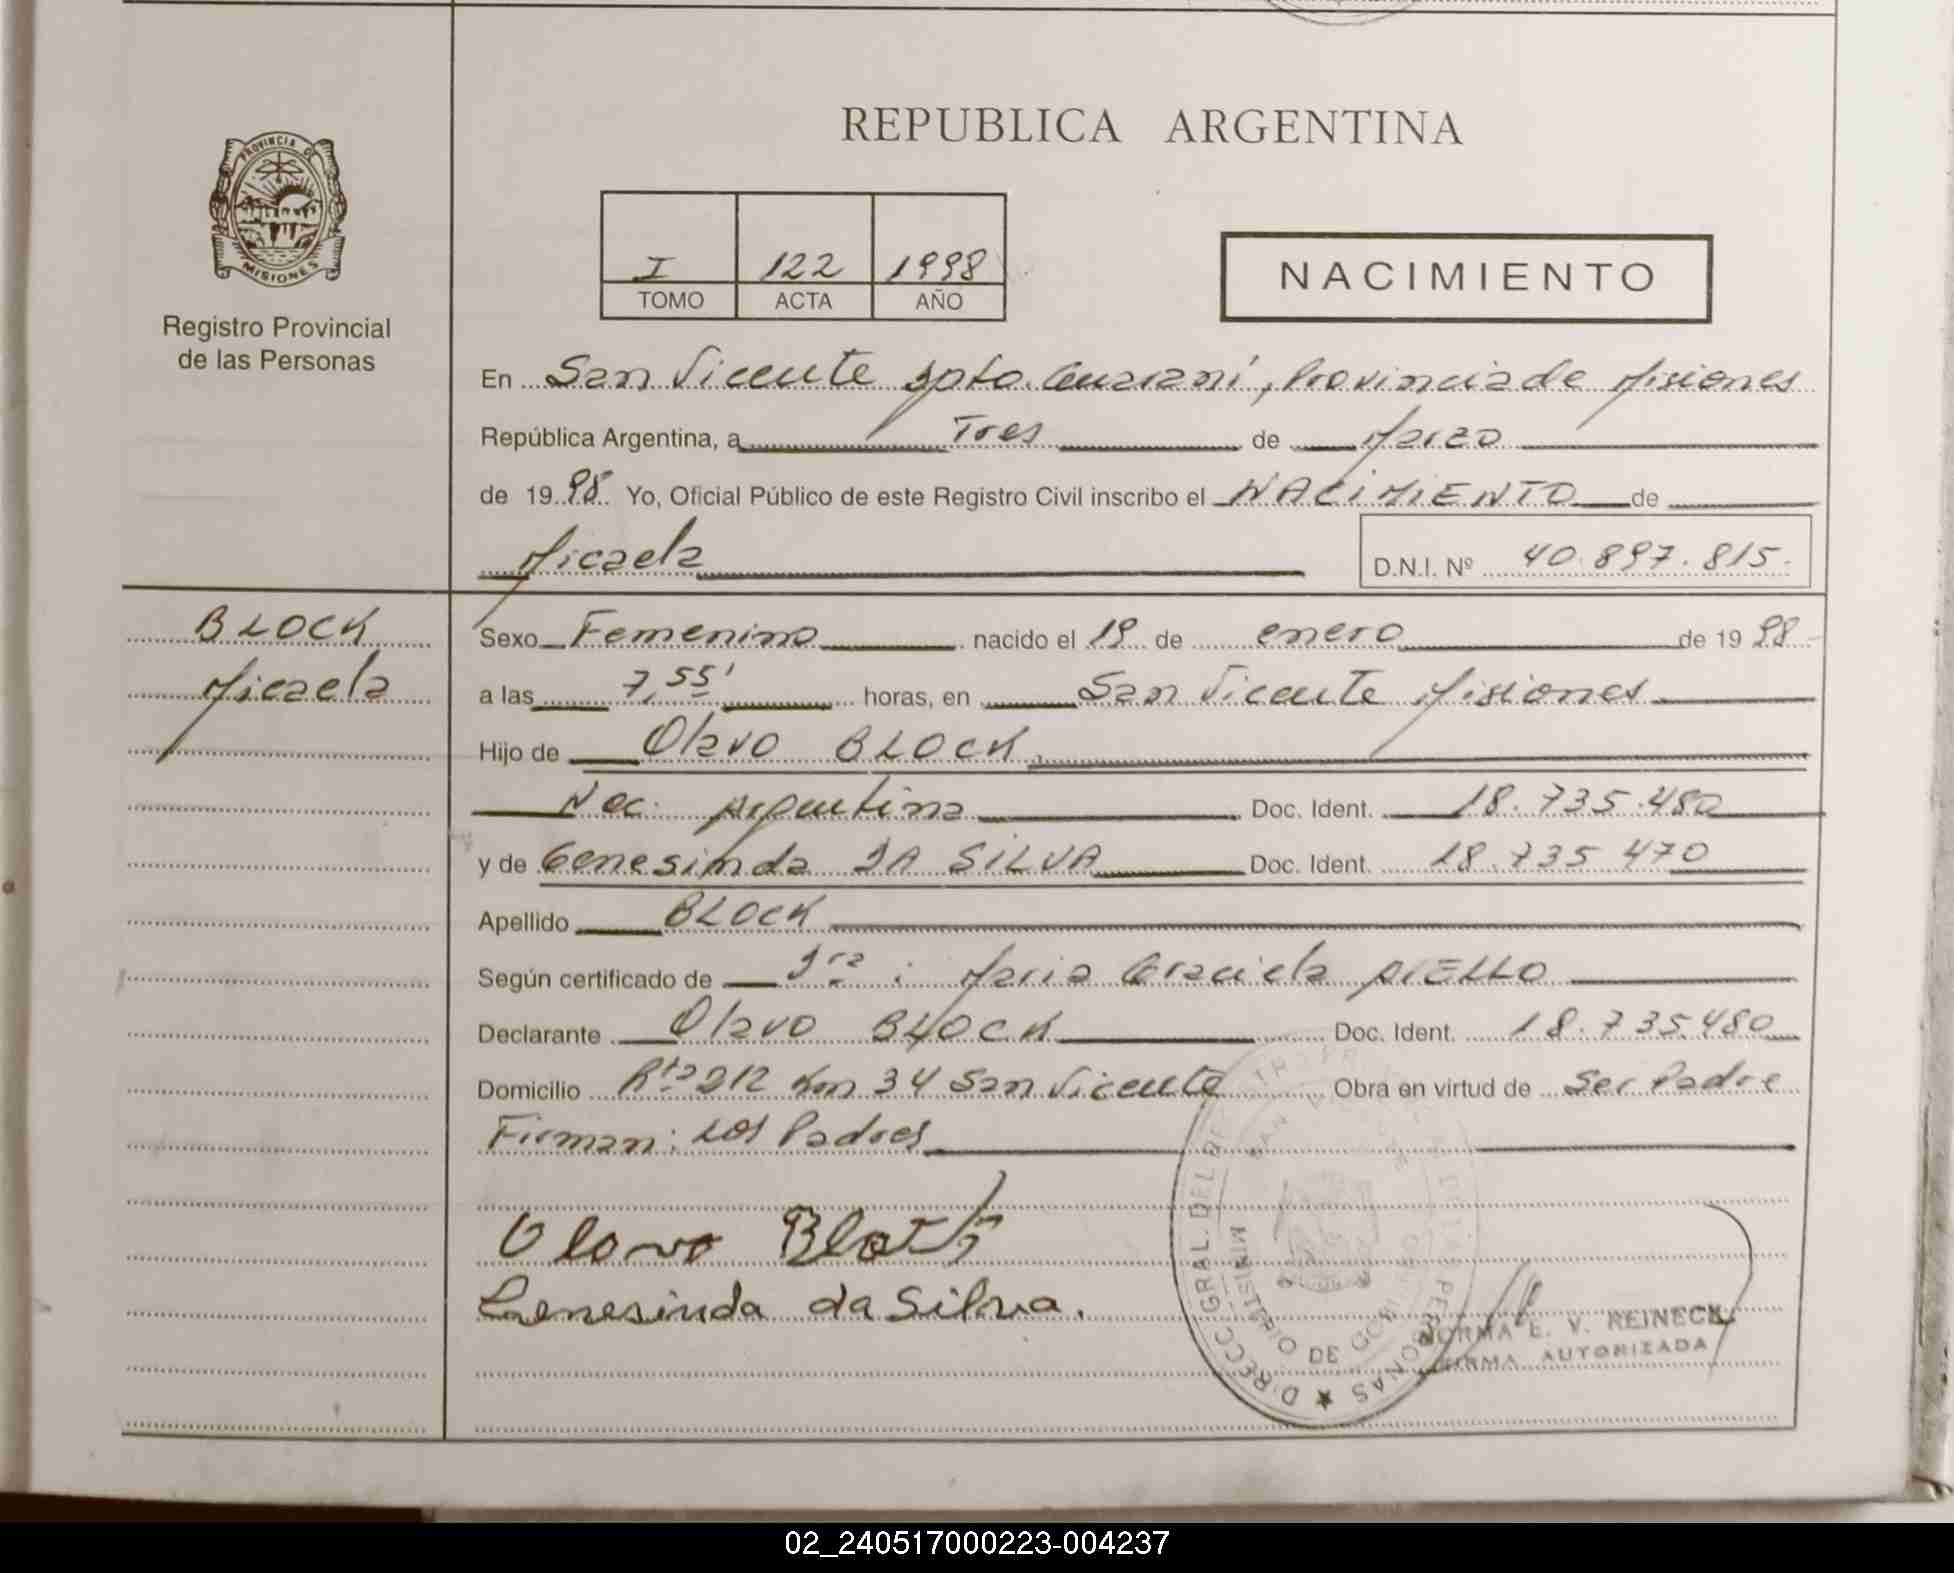 REPUBLICA ARGENTINA
PROVINCIA DE
MISIONES
Registro Provincial
de las Personas
I 122 1998
TOMO ACTA AÑO
NACIMIENTO
En San Vicente Dpto. Guaraní, Provincia de Misiones
República Argentina, a Tres de Marzo
de 1998 Yo, Oficial Público de este Registro Civil inscribo el NACIMIENTO de
Micaela D.N.I. Nº 40.897.815.
BLOCK
Micaela
Sexo Femenino nacido el 19 de enero de 1998
a las 7,55' horas, en San Vicente Misiones
Hijo de Olavo BLOCK,
Nac. Argentina Doc. Ident. 18.735.480
y de Genesinda DA SILVA Doc. Ident. 18.735 470
Apellido BLOCK
Según certificado de Dra: Maria Graciela AIELLO
Declarante Olavo BLOCK Doc. Ident. 18.735.480
Domicilio Rta 212 Km 34 San Vicente Obra en virtud de Ser Padre
Firman: Los Padres
Olavo Block
Genesinda da Silva.
DIRECC. GRAL. DEL PERSONAS
MINISTERIO DE GOBIERNO
SAN VICENTE
NORMA E. V. REINECK
FIRMA AUTORIZADA
02_240517000223-004237